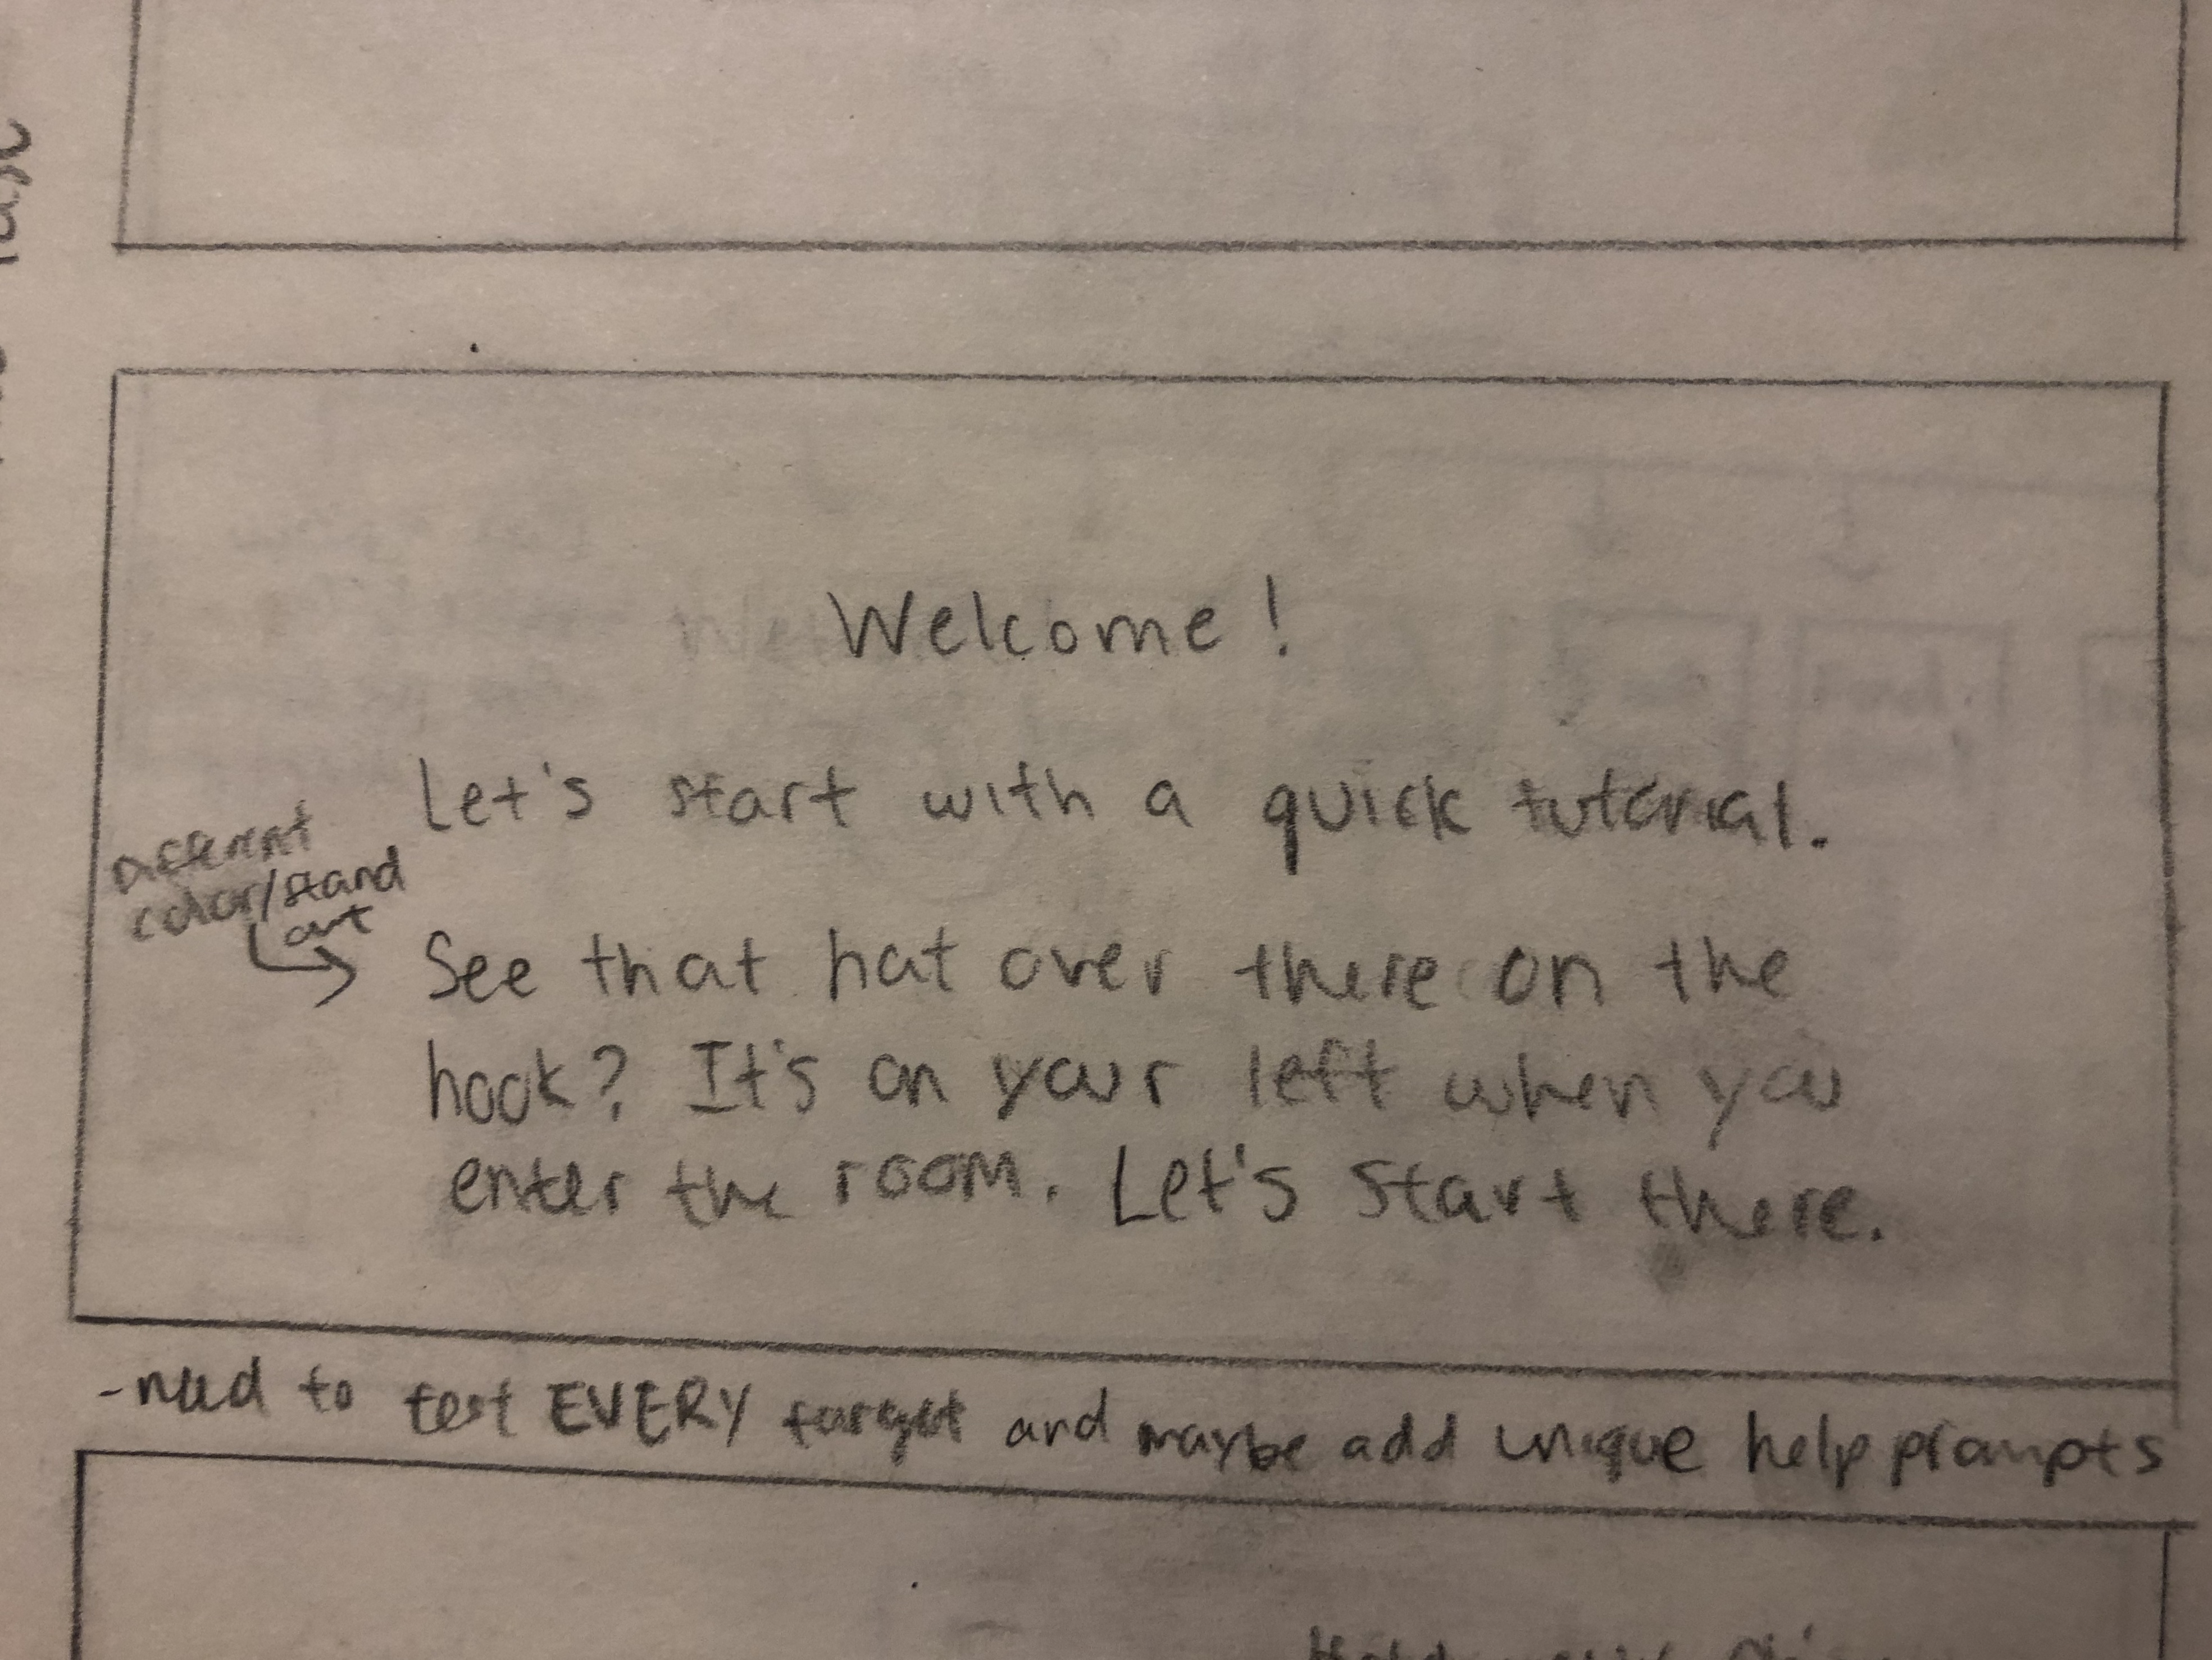 Welcome!
Let's start with a quick tutorial.
Different
color/stand
out
See that hat over there on the
hook? It's on your left when you
enter the room. Let's start there.
-need to test EVERY target and maybe add unique help prompts